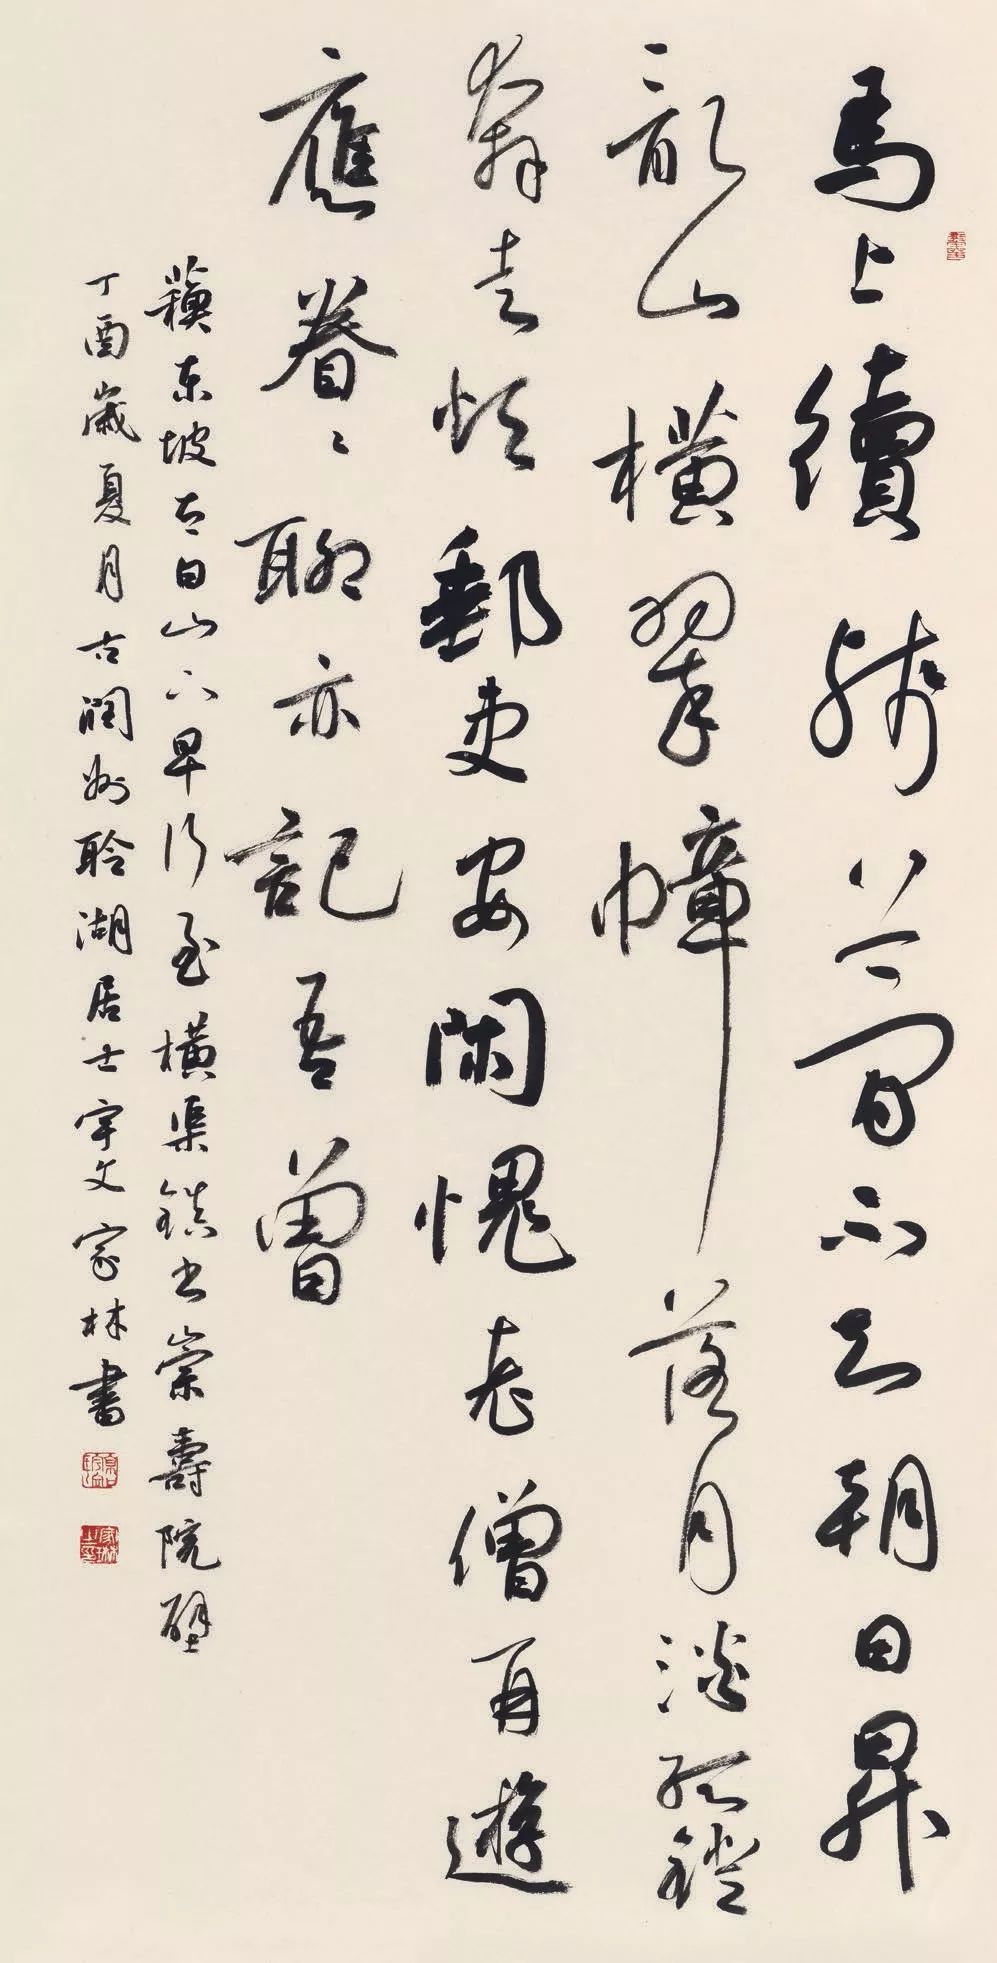 馬上續殘夢不知朝日昇
亂山橫翠幛落月淡孤鐙
奔走煩郵吏安閑愧老僧再遊
應眷々聊亦記吾曾
蘇東坡太白山下早行至橫渠鎮書崇壽院壁
丁酉歲夏月古潤州聆湖居士宇文家林書